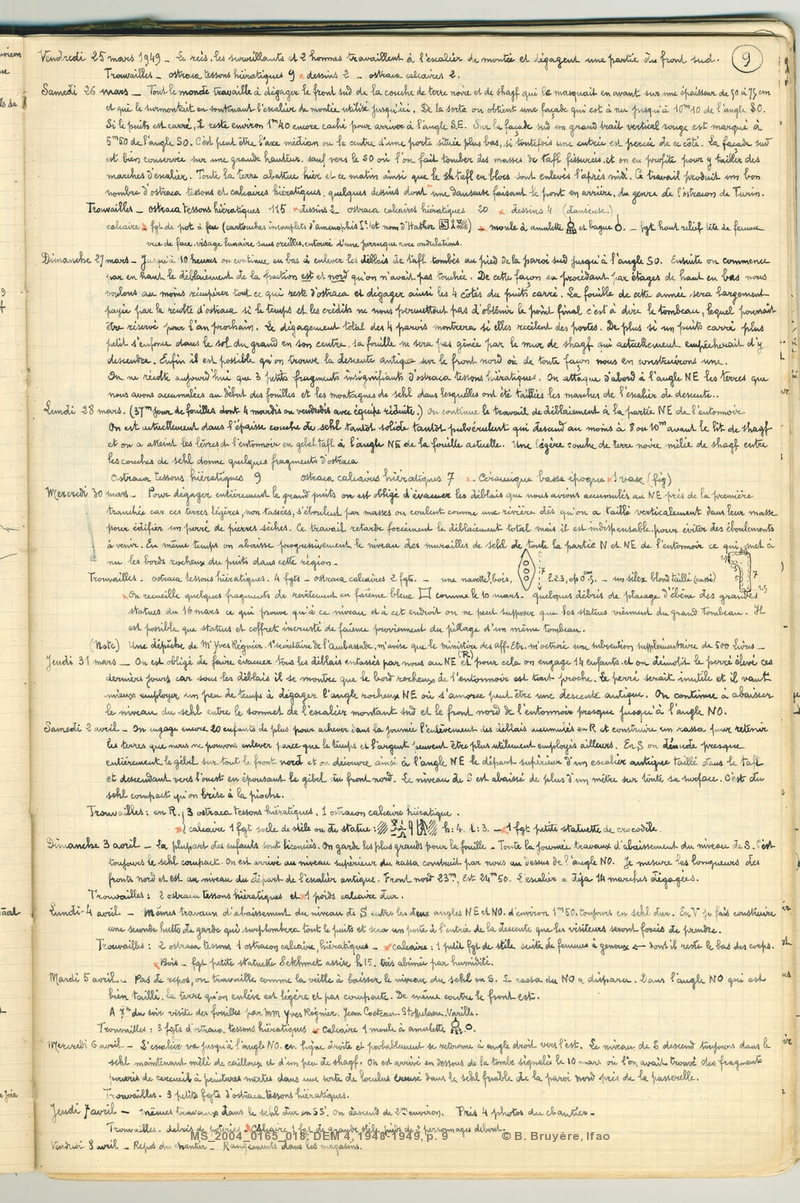 9
Vendredi 25 mars 1949 _ Le reis, les surveillants et 2 hommes travaillent à l'escalier de montée et dégagent une partie du front sud.
Trouvailles _ ostraca tessons hiératiques 9 dessins 2 _ ostraca calcaires 2.
Samedi 26 mars _ Tout le monde travaille à dégager le front sud de la couche de terre noire et de shagf qui le masquait en avant sur une épaisseur de 50 à 75 cm
et qui le surmontait en soutenant l'escalier de montée utilisé jusqu'ici. De la sorte on obtient une façade qui est à nu jusqu'à 10m10 de l'angle SO.
Si le puits est carré, il reste environ 1m40 encore caché pour arriver à l'angle S.E. Sur la façade sud un grand trait vertical rouge est marqué à
5m50 de l'angle SO. C'est peut être l'axe médian ou le centre d'une porte située plus bas, si toutefois une entrée est percée de ce côté. La façade sud
est bien conservée sur une grande hauteur, sauf vers le SO où l'on fait tomber des masses de tafl fissurées, et on en profite pour y tailler des
marches d'escalier. Toute la terre abattue hier et ce matin ainsi que le tafl en blocs sont enlevés l'après midi. Ce travail produit un bon
nombre d'ostraca tessons et calcaires hiératiques, quelques dessins dont une danseuse faisant le pont en arrière, du genre de l'ostracon de Turin.
Trouvailles _ ostraca tessons hiératiques 115 dessins 2 ostraca calcaires hiératiques 20 dessins 4 (danseuse)
calcaire fgt de pot à feu (cartouches incomplets d'amenophis I et nom d'Hathor) _ moule à amulette et bague _ fgt haut relief tête de femme
vue de face, visage lunaire sans oreilles, entouré d'une perruque avec ondulations.
Dimanche 27 mars _ Jusqu'à 10 heures on continue en bas à enlever les déblais de tafl tombés au pied de la paroi sud jusqu'à l'angle SO. Ensuite on commence
par en haut le déblaiement de la fraction est et nord qu'on n'avait pas touchée. De cette façon en procédant par étages de haut en bas nous
voulons au moins récupérer tout ce qui reste d'ostraca et dégager ainsi les 4 côtés du puits carré. La fouille de cette année sera largement
payée par la récolte d'ostraca si le temps et les crédits ne nous permettent pas d'obtenir le point final c'est à dire le tombeau, lequel pourrait
être réservé pour l'an prochain. Le dégagement total des 4 parois montrera si elles recèlent des portes. De plus si un puits carré plus
petit s'enfonce dans le sol du grand en son centre, sa fouille ne sera pas gênée par le mur de shagf qui actuellement empêcherait d'y
descendre. Enfin il est possible qu'on trouve la descente antique sur le front nord où de toute façon nous en construirons une.
On ne récolte aujourd'hui que 3 petits fragments insignifiants d'ostraca tessons hiératiques. On attaque d'abord à l'angle NE les terres que
nous avons accumulées au début des fouilles et les montagnes de sehl dans lesquelles ont été taillées les marches de l'escalier de descente.
Lundi 28 mars. (37me jour de fouilles dont 4 mardis ou vendredis avec équipe réduite.) On continue le travail de déblaiement à la partie NE de l'entonnoir
On est actuellement dans l'épaisse couche de sehl tantôt solide tantôt pulvérulent qui descend au moins à 8 ou 10m avant le lit de shagf
et on a atteint les lèvres de l'entonnoir en gebel tafl à l'angle NE de la fouille actuelle. Une légère couche de terre noire mêlée de shagf entre
les couches de sehl donne quelques fragments d'ostraca
Ostraca tessons hiératiques 9 ostraca calcaires hiératiques 7 _ Céramique basse époque 1 vase (fig)
Mercredi 30 mars _ Pour dégager entièrement le grand puits on est obligé d'évacuer les déblais que nous avions accumulés au NE près de la première
tranchée car ces terres légères, non tassées, s'éboulent par masses ou coulent comme une rivière dès qu'on a taillé verticalement dans leur masse
pour édifier un perré de pierres sèches. Ce travail retarde forcément le déblaiement total mais il est indispensable pour éviter des éboulements
à venir. En même temps on abaisse progressivement le niveau des murailles de sehl de toute la partie N et NE de l'entonnoir ce qui met à
nu les bords rocheux du puits dans cette région _
Trouvailles _ ostraca tessons hiératiques. 4 fgts _ ostraca calcaires 2 fgts. _ une navette, bois, _ un silex blond taillé (cassé)
On recueille quelques fragments de revêtement en faïence bleue comme le 10 mars. Quelques débris de placage d'ébène des grandes
statues du 16 mars ce qui prouve qu'à ce niveau et à cet endroit on ne peut supposer que les statues viennent du grand tombeau. Il
est possible que statues et coffret incrusté de faïence proviennent du pillage d'un même tombeau.
(Note) Une dépêche de Mr Yves Régnier 1er secrétaire de l'ambassade, m'avise que le ministère des Aff. Etr. m'octroie une subvention supplémentaire de 500 livres _
Jeudi 31 mars _ On est obligé de faire évacuer tous les déblais entassés par nous au NE (R) et pour cela on engage 14 enfants et on démolit le perré élevé ces
derniers jours car sous les déblais il se montre que le bord rocheux de l'entonnoir est tout proche. Le perré serait inutile et il vaut
mieux employer un peu de temps à dégager l'angle rocheux NE où s'amorce peut être une descente antique. On continue à abaisser
le niveau du sehl entre le sommet de l'escalier montant sud et le front nord de l'entonnoir presque jusqu'à l'angle NO.
Samedi 2 avril _ On engage encore 20 enfants de plus pour achever dans la journée l'enlèvement des déblais accumulés en R et construire un rassa pour retenir
les terres que nous ne pouvons enlever parce que le temps et l'argent peuvent être plus utilement employés ailleurs. En S on dénude presque
entièrement le gebel sur tout le front nord et on découvre ainsi à l'angle NE le départ supérieur d'un escalier antique taillé dans le tafl
et descendant vers l'ouest en épousant le gebel du front nord. Le niveau de S est abaissé de plus d'un mètre sur toute sa surface. C'est du
sehl compact qu'on brise à la pioche.
Trouvailles : en R. 3 ostraca tessons hiératiques. 1 ostracon calcaire hiératique.
calcaire 1 fgt socle de stèle ou de statue : h: 4. l: 3. _ 1 fgt petite statuette de crocodile.
Dimanche 3 avril _ La plupart des enfants sont licenciés. On garde les plus grands pour la fouille _ Toute la journée travaux d'abaissement du niveau de S. C'est
toujours le sehl compact. On est arrivé au niveau supérieur du rassa construit par nous au dessus de l'angle NO. Je mesure les longueurs des
fronts nord et est au niveau du départ de l'escalier antique. Front nord 23m, Est 24m50. L'escalier a déjà 14 marches dégagées.
Trouvailles : 2 ostraca tessons hiératiques et 1 poids calcaire dur.
Lundi 4 avril _ Mêmes travaux d'abaissement du niveau de S entre les deux angles NE et NO. d'environ 1m50. toujours en sehl dur. En V je fais construire
une seconde hutte de garde qui surplombera tout le puits et sera un poste à l'entrée de la descente que les visiteurs seront forcés de prendre.
Trouvailles : 2 ostraca tessons 1 ostracon calcaire, hiératiques _ calcaire : 1 petit fgt de stèle suite de femmes à genoux ← dont il reste le bas des corps.
Bois _ fgt petite statuette Sekhmet assise h 15. très abîmée par humidité.
Mardi 5 avril _ Pas de repos, on travaille comme la veille à baisser le niveau du sehl en S. Le rassa du NO a disparu. Dans l'angle NO qui est
bien taillé, la terre qu'on enlève est légère et peu compacte. De même contre le front est.
A 7h du soir visite des fouilles par MM Yves Régnier, Jean Cocteau, Varille.
Trouvailles : 3 fgts d'ostraca tessons hiératiques Calcaire 1 moule à amulette
Mercredi 6 avril _ L'escalier va jusqu'à l'angle NO. en ligne droite et probablement se retourne à angle droit vers l'est. Le niveau de S descend toujours dans le
sehl maintenant mêlé de cailloux et d'un peu de shagf. On est arrivé en dessous de la tombe signalée le 10 mars où l'on avait trouvé des fragments
pourris de cercueil à peintures mates dans une sorte de loculus creusé dans le sehl friable de la paroi nord près de la passerelle.
Trouvailles. 3 petits fgts d'ostraca tessons hiératiques.
Jeudi 7 avril _ mêmes travaux dans le sehl dur en SS'. On descend de 2m environ. Pris 4 photos du chantier _
Trouvailles. debris de poteries, Calcaire 1 fgt de grande stèle pieds de 2 personnages debout.
Vendredi 8 avril _ Repos du chantier _ Rangements dans les magasins.
MS_2004_0165_018, DEM 4, 1948-1949, p. 9 © B. Bruyère, Ifao